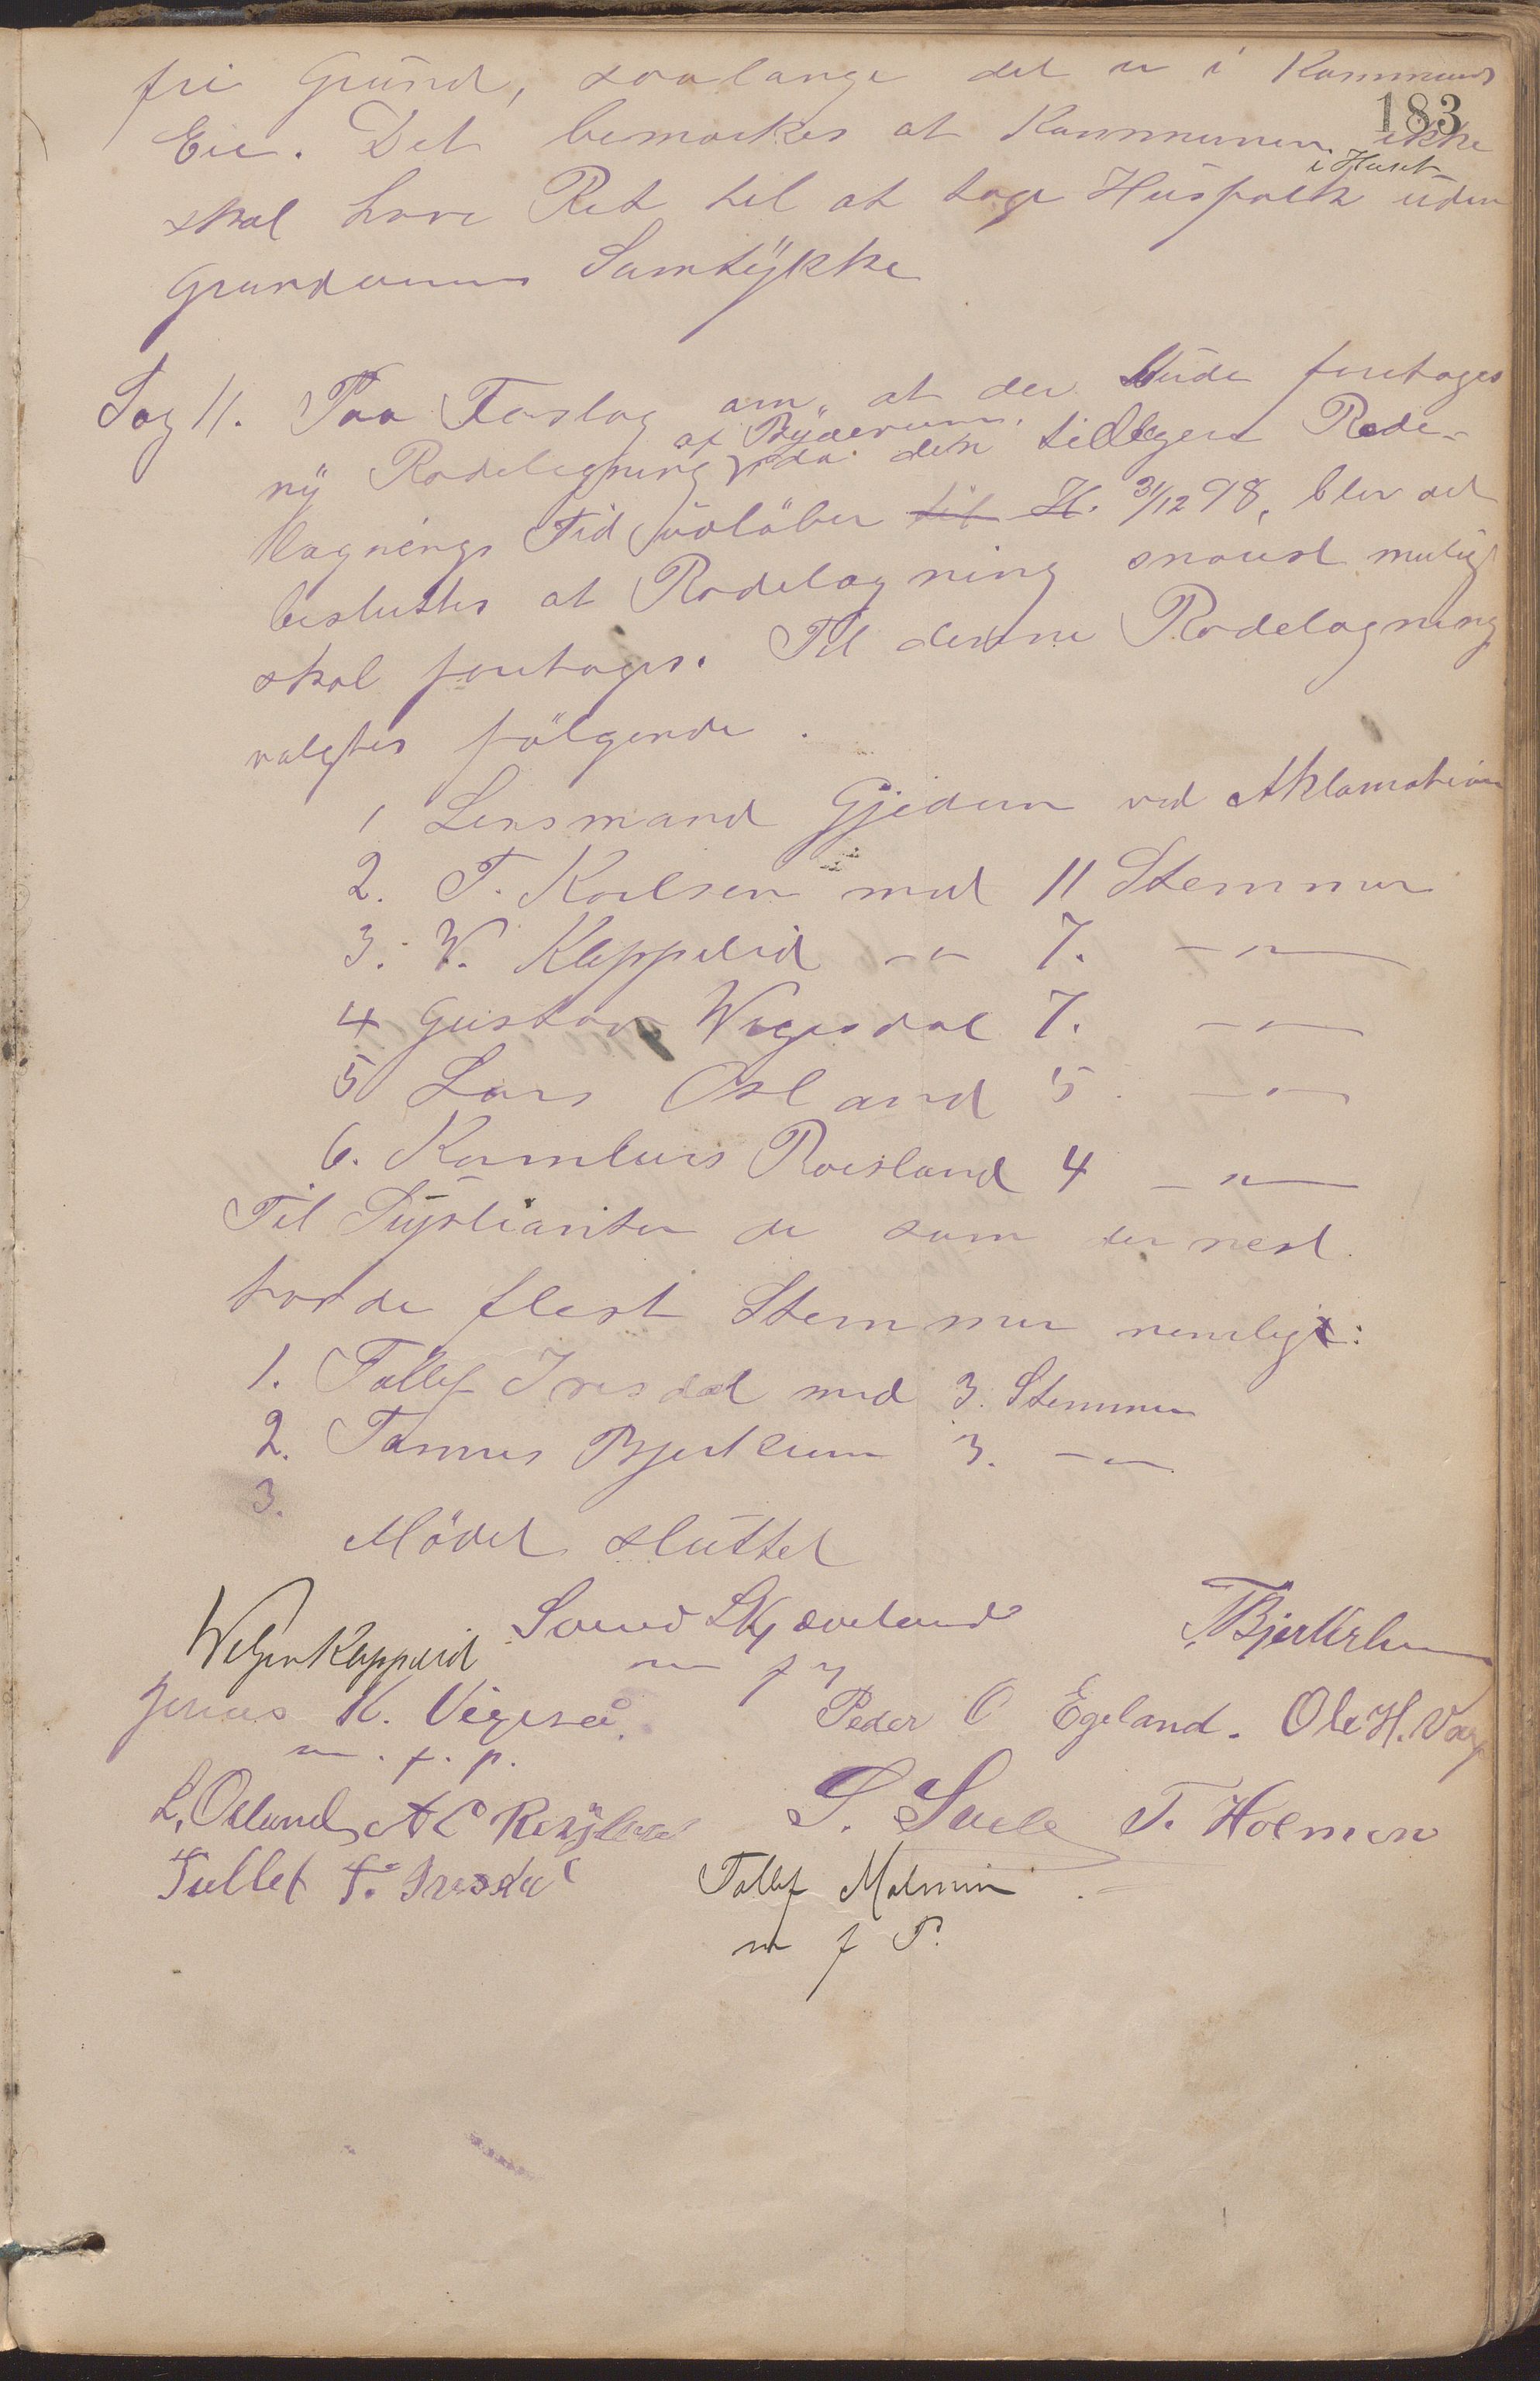 183
fri Grund, saalange det er i Kommunens
Eie. Det bemærkes at Kommunen ikke
skal have Ret til at tage Husfolk i Huset uden
Grundeiernes Samtykke
Sag 11. Paa Forslag om at der burde foretages
ny Rodelægning af Bygderne, da den tidligere Rode-
lægnings Tid udløber til H. 31/12 98, blev det
besluttes at Rodelægning snarest muligt
skal foretages. Til denne Rodelægning
valgtes følgende.
1 Lensmand Gjedrem ved Aklamation
2. T. Karlsen med 11 Stemmer
3. V. Keppelid -"- 7. -"-
4 Gustav Wigesdal 7. -"-
5 Lars Osland 5. -"-
6. Kornelius Roesland 4 -"-
Til Suplianter de som dernest
havde flest Stemmer nemlig:
1. Tollef Ivesdal med 3. Stemmer
2. Tønnes Bjerkreim 3. -"-
3.
Mödet sluttet
Keppelid Svend Skjæveland T. Bjerkreim
m f p
Jonas K. Vigeså. Peder O Egeland. Ole H.
m. f. p.
L. Osland, T. Holmen
Tollef T. Ivesdal Tollef Malmin
m f P.